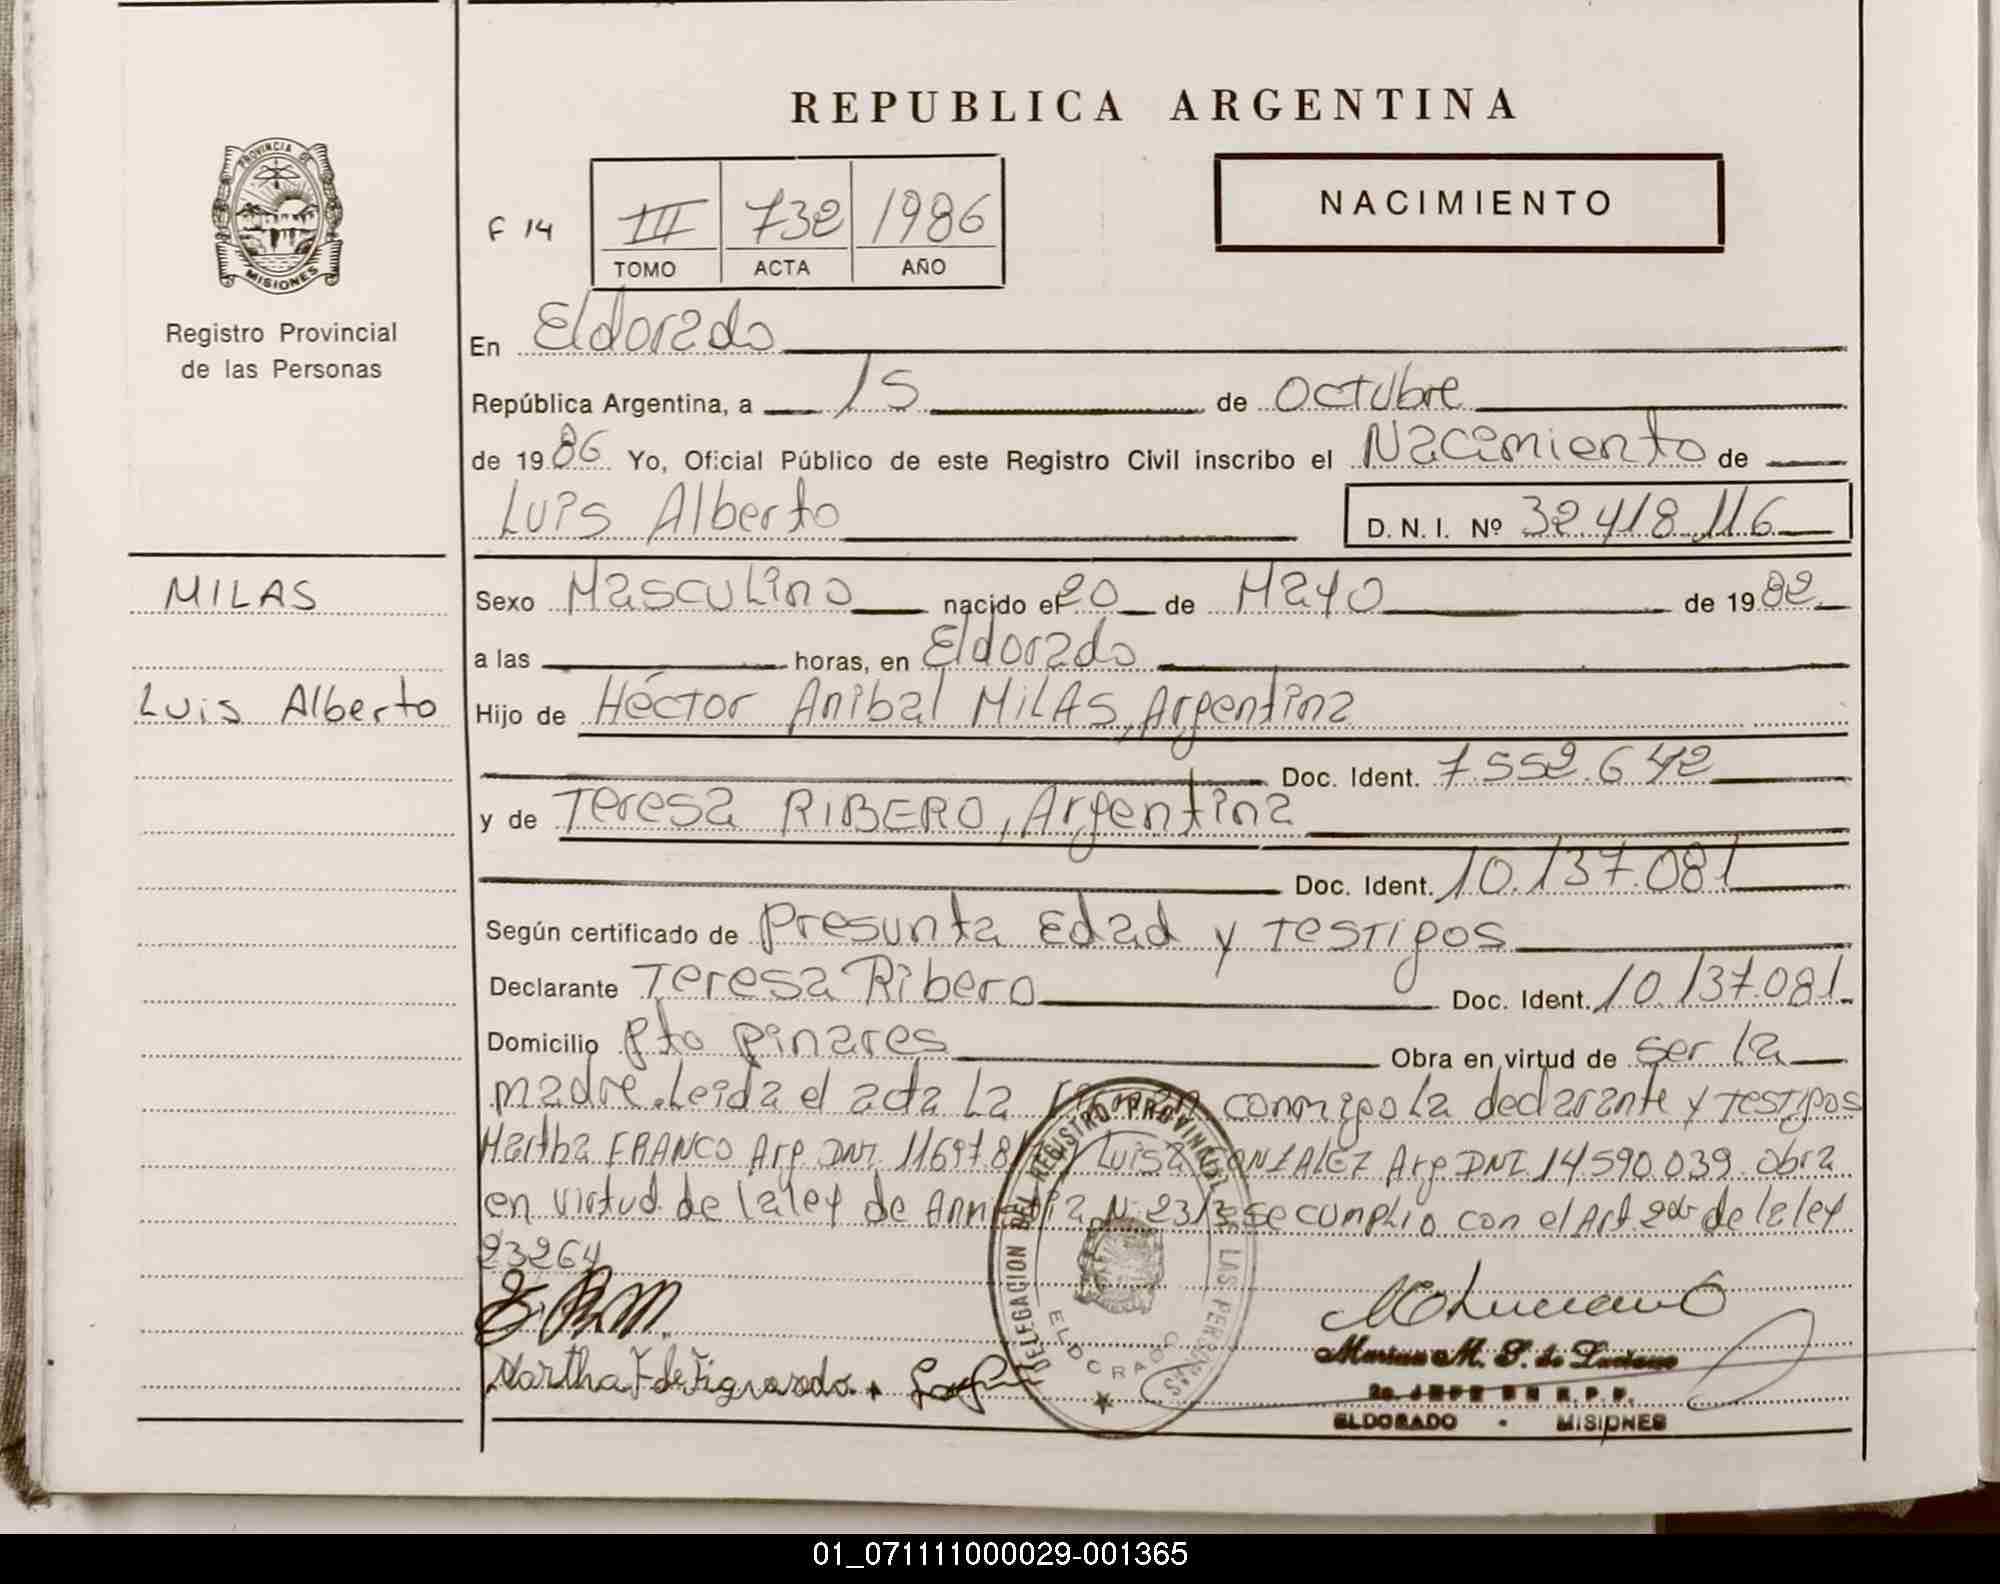 REPUBLICA ARGENTINA
PROVINCIA DE
MISIONES
Registro Provincial
de las Personas
F 14
III 732 1986
TOMO ACTA AÑO
NACIMIENTO
En Eldorado
República Argentina, a 15 de Octubre
de 1986 Yo, Oficial Público de este Registro Civil inscribo el Nacimiento de
Luis Alberto D. N. I. Nº 32.418.116
MILAS
Luis Alberto
Sexo Masculino nacido el 20 de Mayo de 1982
a las horas, en Eldorado
Hijo de Héctor Anibal MILAS, Argentina
Doc. Ident. 7.552.642
y de Teresa RIBERO, Argentina
Doc. Ident. 10.137.081
Según certificado de presunta Edad y testigos
Declarante Teresa Ribero Doc. Ident. 10.137.081
Domicilio Pto pinares Obra en virtud de ser la
madre. Leida el acta La conmigo la declarante y testigos
Martha FRANCO Arg DNI Luisa GONZALEZ Arg DNI 14.590.039. obra
en virtud de la ley de se cumplio con el Art 2do de la ley
23264
DELEGACION DEL REGISTRO PROVINCIAL DE LAS PERSONAS
ELDORADO
Martha F de Figueredo
de Luciano
2o JEFE
ELDORADO - MISIONES
01_071111000029-001365